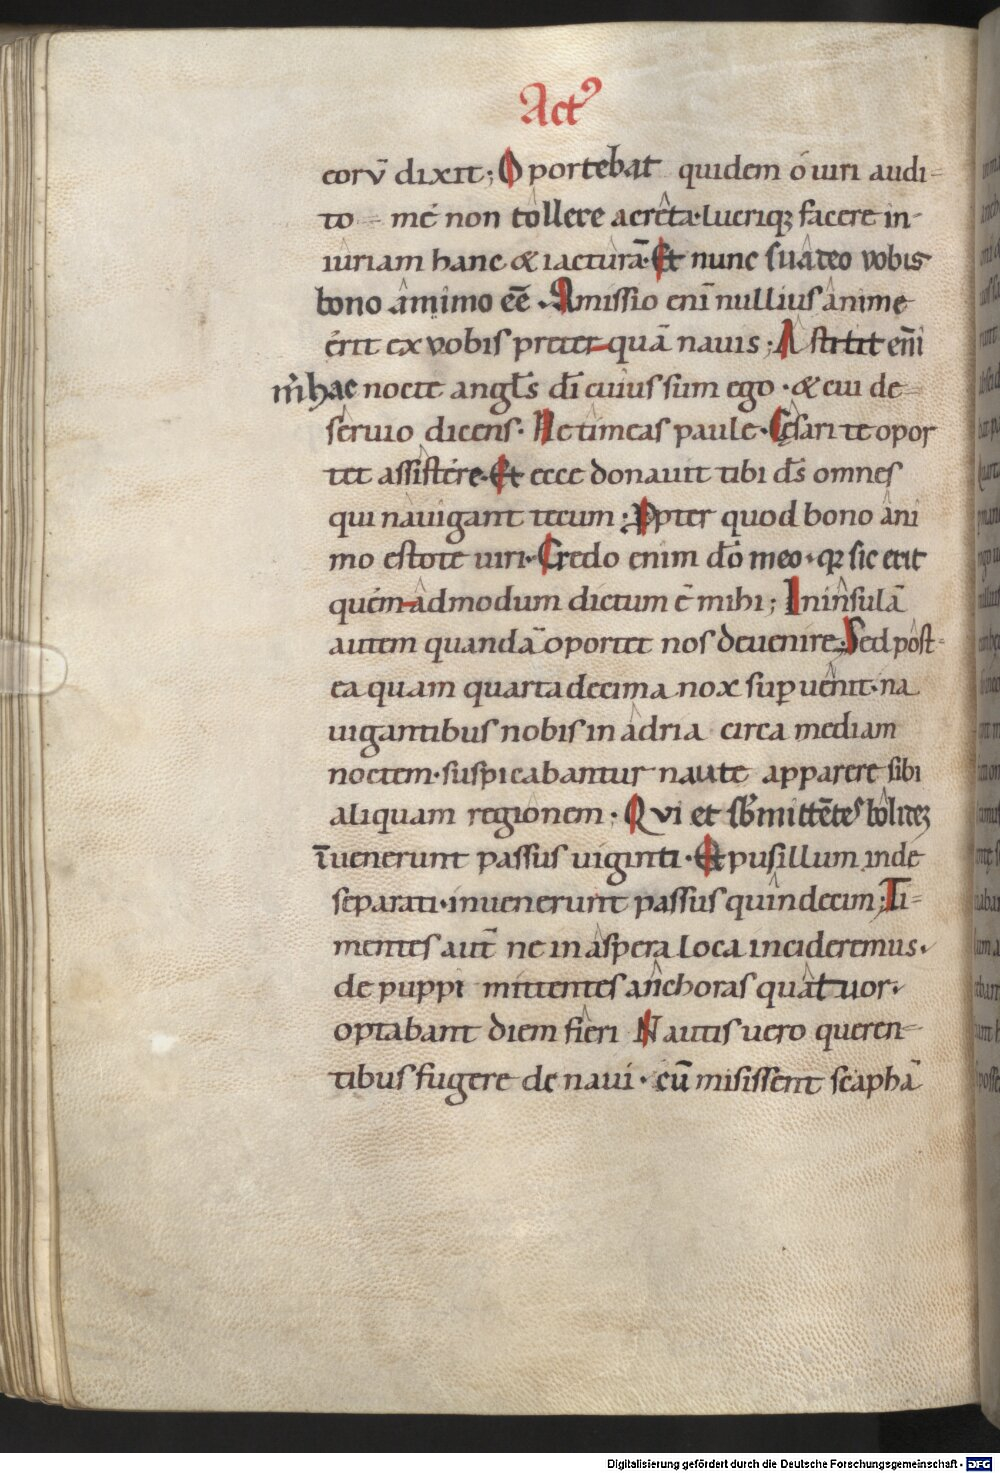 Act᾿
eorū dixit; Oportebat quidem ó uiri audi-
to me non tollere a creta. lucriq; facere in-
iuriam hanc & iacturā. Et nunc suadeo vobis
bono ânimo eē. Amissio eni nullius ânime
érit ex vobis preter quā nauis; Astitit eni
m̓ hac nocte angl̄s dī cuius sum ego. & cui de-
sêruio dicens. Ne timeas paule. Cęsari te opor
tet assistére. Et ecce donauit tibi d̄s omnes
qui nàuigant tecum; P̱pter quod bono âni
mo estote uiri. Credo enim dō meo. qꝛ sic erit
quém âdmodum dictum ē mihi; In însulā
autem quandā oportet nos deuenire; Sed pôst-
ea quam quarta decima nox suꝑuênit. na
uigantibus nobis in âdria circa mediam
noctem. suspicabantur naute apparere sibi
aliquam regiônem. Qvi et sb̓mittētes bôlideꝫ
īuenerunt passus uiginti. Et pusillum inde
separati. inuenerunt passus quîndecim; Ti-
mentes aut̄ ne in âspera loca incideremus.
de puppi mittentes ânchoras quâtuor.
optabant diem fîeri Nautis uero queren-
tibus fugere de naui. cū misissent scaphā
Digitalisierung gefördert durch die Deutsche Forschungsgemeinschaft - DFG